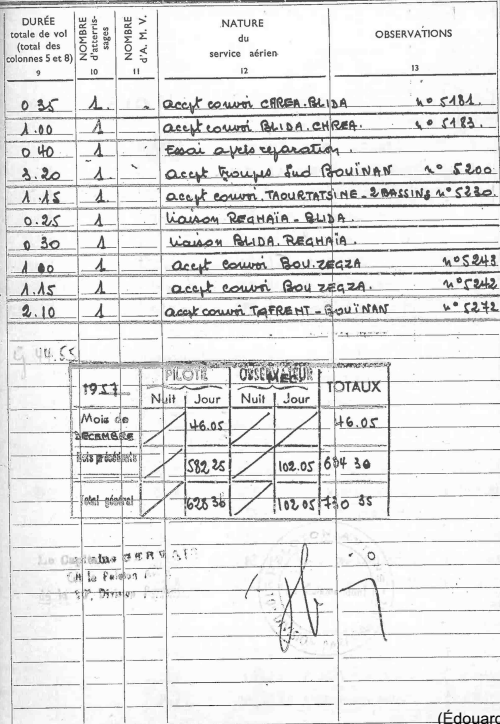 DURÉE totale de vol (total des colonnes 5 et 8) NOMBRE d'atterrissages NOMBRE d'A. M. V. NATURE du service aérien OBSERVATIONS
9 10 11 12 13
0 35 1. accpt convoi CHREA.BLIDA n° 5181.
1.00 1 accpt convoi BLIDA.CHREA. n° 5183.
0 40 1 Essai après réparation.
3.20 1 accpt troupes Sud BOUÏNAN n° 5200
1.15 1. accpt convoi. TAOURTATSINE_2BASSINS n° 5230.
0.25 1 liaison REGHAÏA_BLIDA.
0 30 1 liaison BLIDA.REGHAÏA.
1 00 1. accpt convoi BOU.ZEGZA n° 5243
1.15 1. accpt convoi BOU ZEGZA. n° 5242
2.10 1 accpt convoi TAFRENT_BOUÏNAN n° 5272
44.55
1957 PILOTE OBSERVATEUR MEC TOTAUX
Nuit Jour Nuit Jour
Mois de DECEMBRE 46.05 46.05
Mois précédents 582,25 102.05 684 30
Total général 628 30 102 05 730 35
Le Capitaine
(Édouard